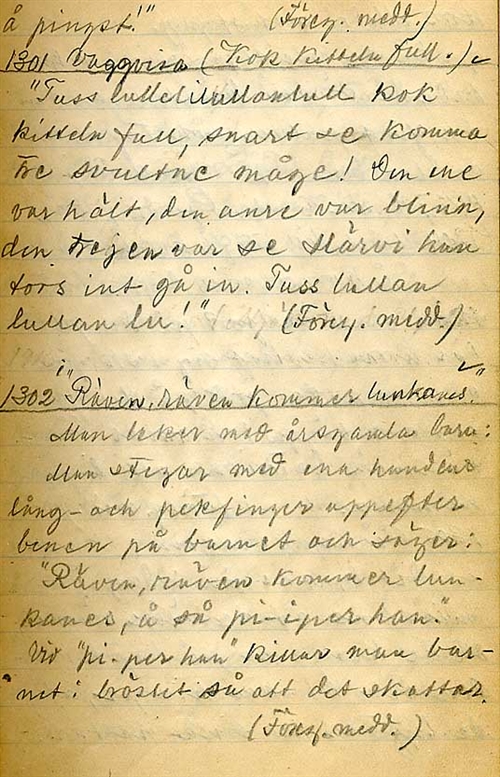 å pingst!" (Föreg. medd.)
1301 Vaggvisa (Kok kitteln full.)
"Tuss lullelilullanlull kok
kitteln full, snart se komma
tre svultne måge! Den ene
var hålt, den anre var blinn,
den trejen var se
tors int gå in. Tuss lullan
lullan lu!" (Föreg. medd.)
1302 "Räven, räven kommer lunkanes."
Man leker med årsgamla barn:
Man stegar med ena handens
lång- och pekfinger uppefter
benen på barnet och säger:
"Räven, räven kommer lun-
kanes, å så pi-iper han."
Vid "pi-per han" killar man bar-
net i bröstet så att det skattar.
(Föreg. medd.)